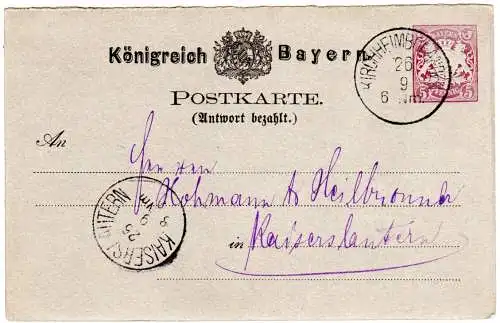 Königreich Bayern
KIRCHHEIMBOLANDEN
26
9
6 Nm.
5 PFENNIG 5
POSTKARTE.
(Antwort bezahlt.)
An
Herren
Hohmann & Heilbronner
in Kaiserslautern
KAISERSLAUTERN
9